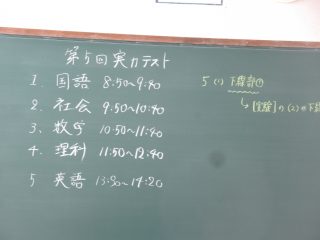 第5回実力テスト
1. 国語 8:50〜9:40
2. 社会 9:50〜10:40
3. 数学 10:50〜11:40
4. 理科 11:50〜12:40
5 英語 13:30〜14:20
5 (1) 下線部①
↳ [実験]の(2)の下線